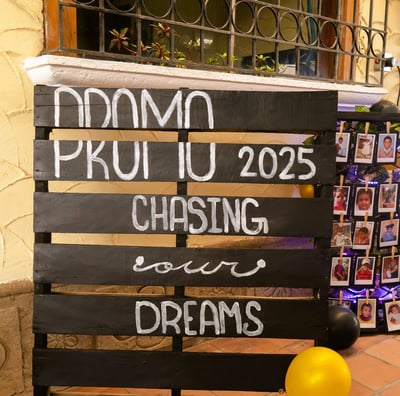 PROMO 2025
CHASING
our
DREAMS